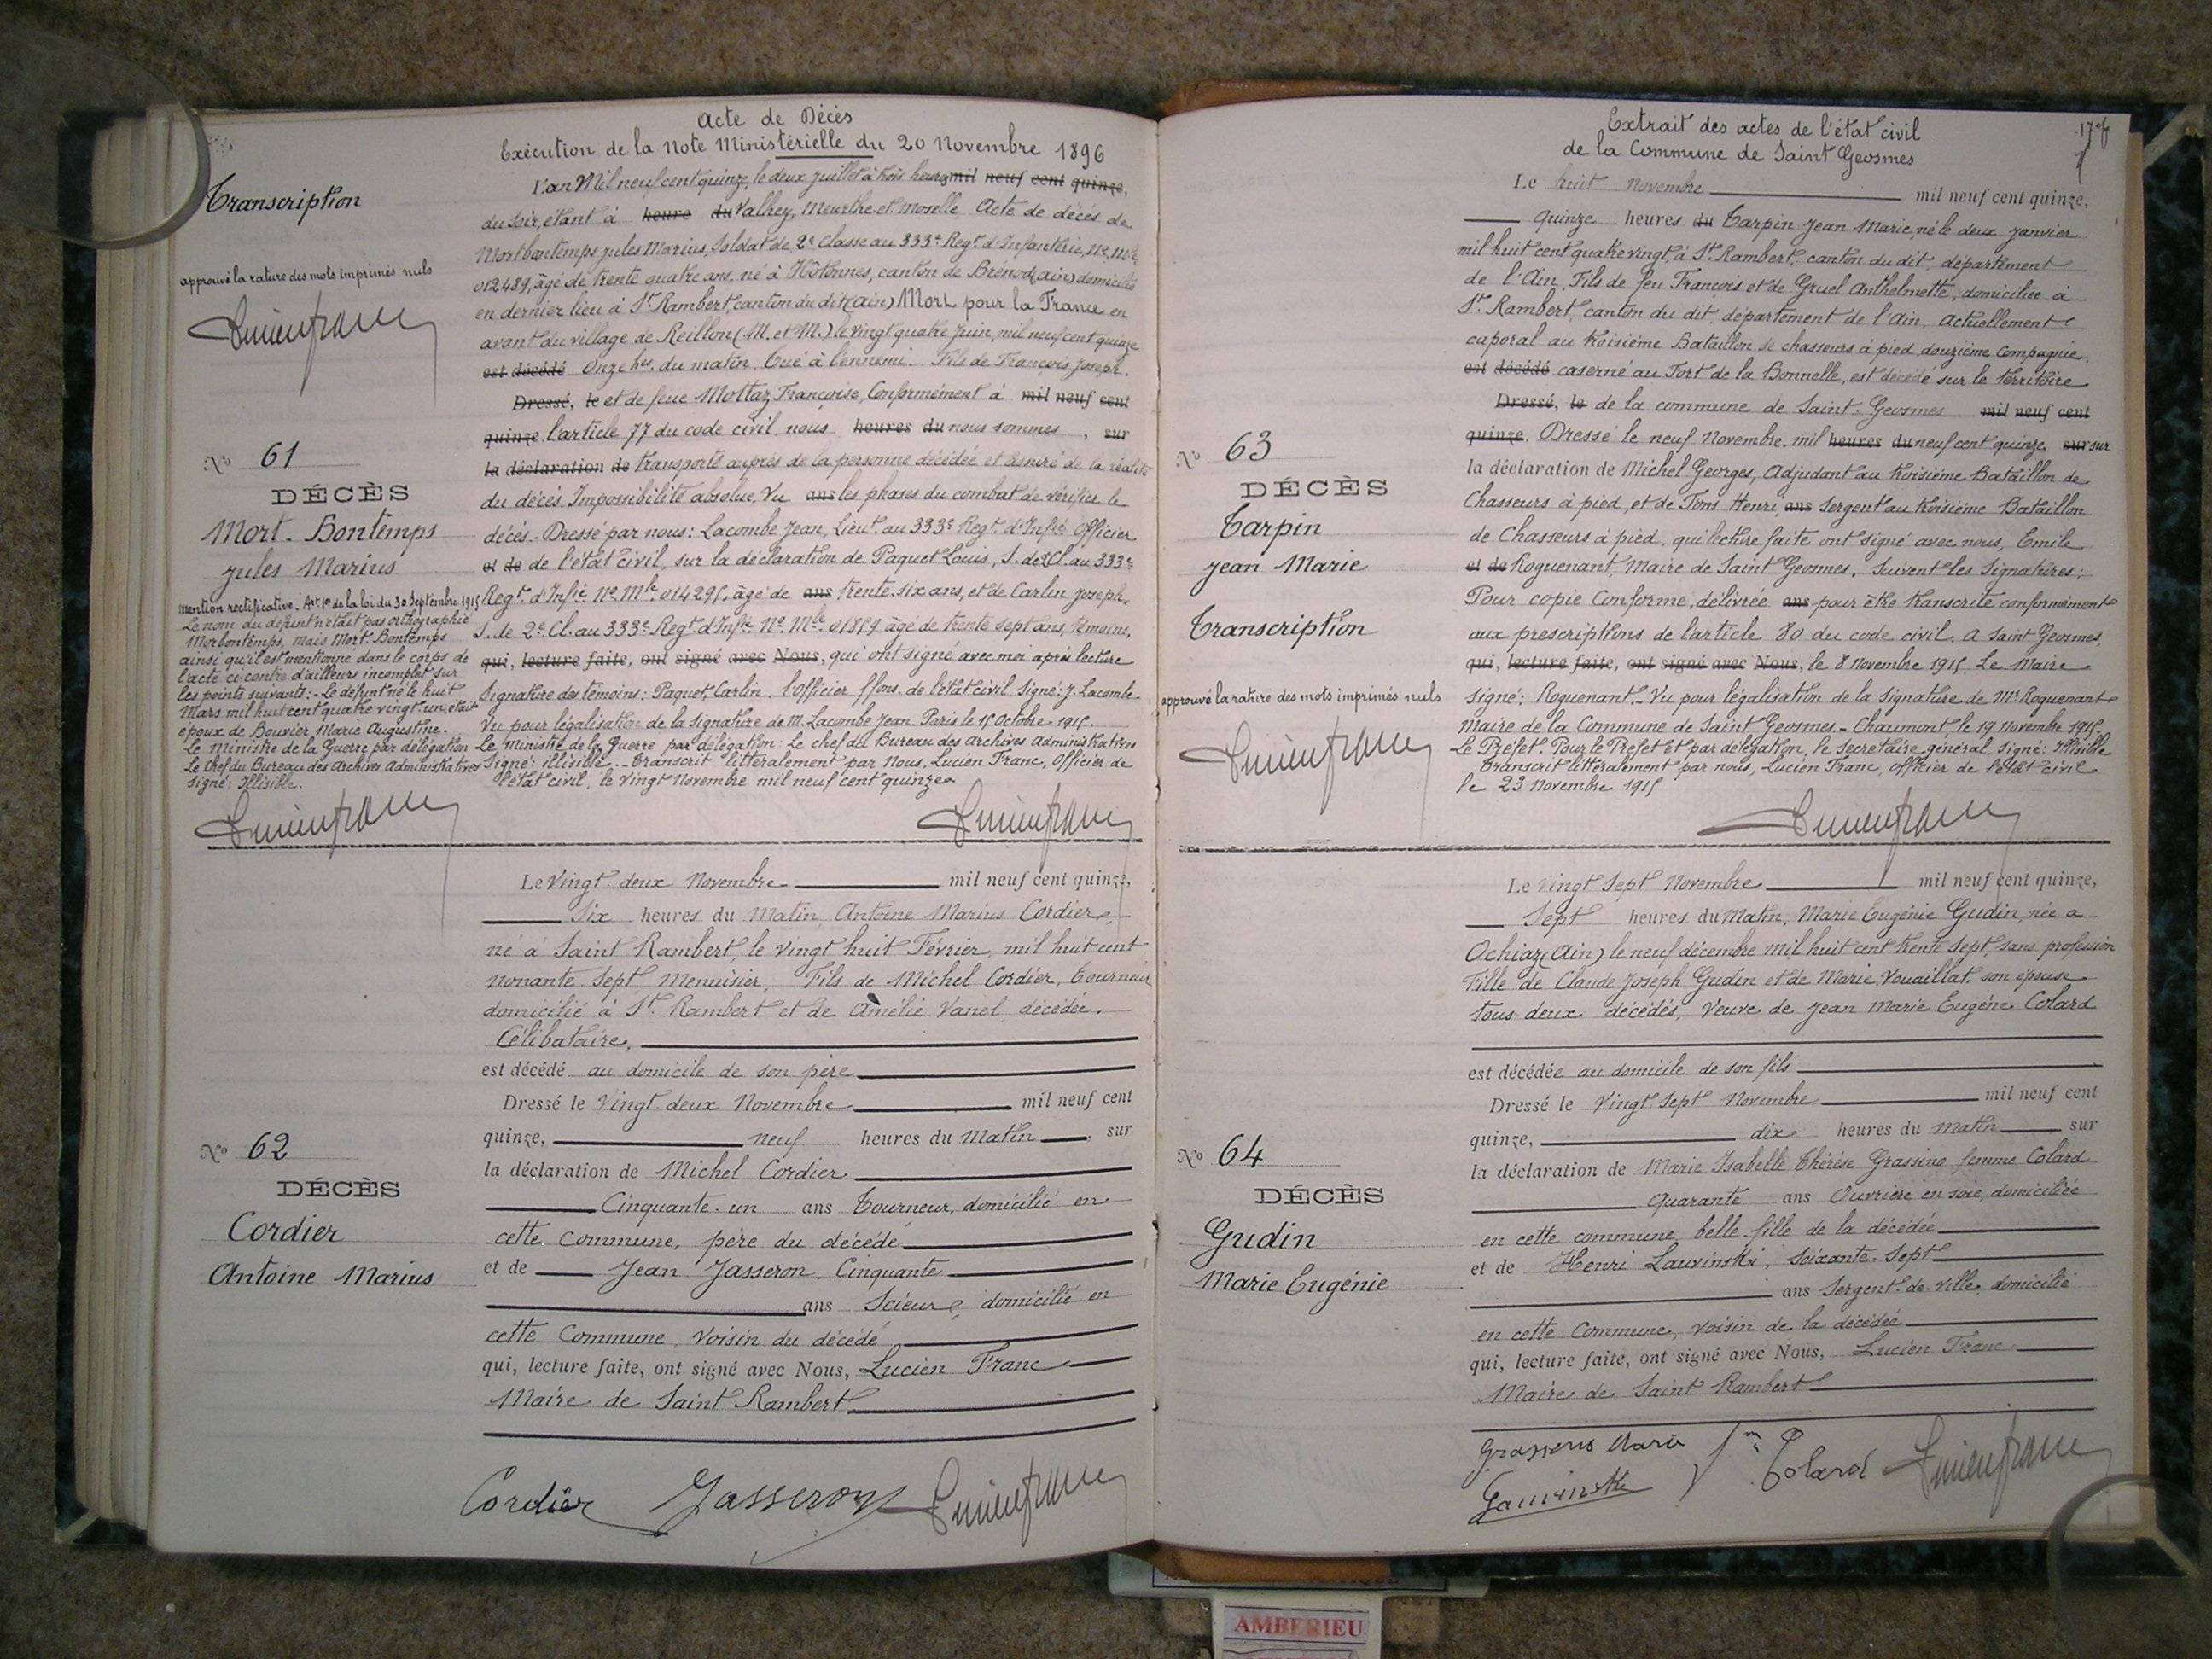 Acte de Décès
Exécution de la Note Ministérielle du 20 Novembre 1896
Transcription
L'an Mil neuf cent quinze, le deux juillet à trois heures mil neuf cent quinze,
du soir, étant à heure du Valhey, Meurthe et Moselle Acte de décès de
Mortbontemps jules Marius, Soldat de 2e Classe au 333e Regt d'Infanterie, No Mle
012489, âgé de trente quatre ans, né à Hôtonnes, canton de Brénod (ain) domicilié
en dernier lieu à St Rambert, canton du dit (ain) Mort pour la France en
avant du village de Reillon (M. et M.) le vingt quatre juin, mil neuf cent quinze
est décédé Onze hes du matin. Tué à l'ennemi. Fils de François joseph.
Dressé, le et de feue Mottaz Françoise, Conformément à mil neuf cent
quinze l'article 77 du code civil, nous heures du nous sommes, sur
la déclaration de transporté auprès de la personne décédée et assuré de la réalité
du décès Impossibilité absolue, Vu ans les phases du combat de vérifier le
décès. Dressé par nous: Lacombe Jean, Lieut au 333e Regt d'Infie Officier
et de de l'état civil, sur la déclaration de Paquet Louis, S. de 2e Cl. au 333e
Regt d'Infie No Mle 014295, âgé de ans trente-six ans, et de Carlin joseph,
S. de 2e Cl. au 333e Regt d'Infie No Mle 01859 âgé de trente sept ans, témoins,
qui, lecture faite, ont signé avec Nous, qui ont signé avec moi après lecture
Signature des témoins: Paquet, Carlin. l'Officier ffons. de l'état civil Signé: J. Lacombe
Vu pour légalisation de la signature de M. Lacombe Jean. Paris le 15 Octobre 1915.
Le Ministre de la Guerre par délégation: Le chef du Bureau des Archives Administratives
Signé: illisible. Transcrit littéralement par Nous, Lucien Franc, Officier de
l'état civil, le vingt Novembre mil neuf cent quinze
approuvé la rature des mots imprimés nuls
Lucien franc
No 61
DÉCÈS
Mort-Bontemps
jules Marius
Mention rectificative. Art 1er de la loi du 30 Septembre 1915
Le nom du défunt n'était pas orthographié
Morbontemps, mais Mort-Bontemps
ainsi qu'il est mentionné dans le corps de
l'acte ci-contre d'ailleurs incomplet sur
les points suivants: - Le défunt né le huit
Mars mil huit cent quatre vingt un, était
époux de Bouvier Marie Augustine.
Le Ministre de la Guerre par délégation
Le Chef du Bureau des Archives Administratives
Signé: Illisible.
Lucien franc
Lucien franc
Le Vingt-deux Novembre mil neuf cent quinze,
Six heures du Matin, Antoine Marius Cordier,
né à Saint Rambert, le vingt huit Février, mil huit cent
nonante-sept, Menuisier, Fils de Michel Cordier, Tourneur
domicilié à St Rambert et de Amélie Vanel, décédée.
Célibataire,
est décédé au domicile de son père
Dressé le Vingt-deux Novembre mil neuf cent
quinze, neuf heures du Matin, sur
la déclaration de Michel Cordier
Cinquante-un ans Tourneur, domicilié en
cette Commune, père du décédé
et de Jean Jasseron, Cinquante
ans Scieur, domicilié en
cette Commune, Voisin du décédé
qui, lecture faite, ont signé avec Nous, Lucien Franc
Maire de Saint Rambert
No 62
DÉCÈS
Cordier
Antoine Marius
Cordier Jasseron Lucien franc
Extrait des actes de l'état civil
de la Commune de Saint Geosmes
Le huit Novembre mil neuf cent quinze,
Quinze heures du Tarpin Jean Marie, né le deux janvier
mil huit cent quatre vingt, à St Rambert, canton du dit, département
de l'Ain, Fils de feu François et de Gruel Anthelmette, domiciliée à
St Rambert, canton du dit, département de l'Ain, Actuellement
caporal au troisième Bataillon de chasseurs à pied, douzième Compagnie,
est décédé caserné au Fort de la Bonnelle, est décédé sur le territoire
Dressé, le de la commune de Saint-Geosmes mil neuf cent
quinze. Dressé le neuf Novembre mil heures du neuf cent quinze, sur sur
la déclaration de Michel Georges, Adjudant au troisième Bataillon de
Chasseurs à pied, et de Tons Henri, ans Sergent au troisième Bataillon
de Chasseurs à pied, qui lecture faite ont signé avec nous, Emile
et de Roguenant, Maire de Saint Geosmes. Suivent les Signatures:
Pour copie Conforme, délivrée ans pour être transcrite conformément
aux prescriptions de l'article 80 du code civil. A Saint Geosmes,
qui, lecture faite, ont signé avec Nous, le 8 Novembre 1915. Le Maire
signé: Roguenant. Vu pour légalisation de la Signature de Mr Roguenant
Maire de la Commune de Saint Geosmes. - Chaumont, le 19 Novembre 1915.
Le Préfet. Pour le Préfet Et par délégation, le Secrétaire général, Signé: Illisible
Transcrit littéralement par nous, Lucien Franc, officier de l'état civil
le 23 Novembre 1915
No 63
DÉCÈS
Tarpin
Jean Marie
Transcription
approuvé la rature des mots imprimés nuls
Lucien franc
Lucien franc
Le Vingt Sept Novembre mil neuf cent quinze,
Sept heures du Matin, Marie Eugénie Gudin, née à
Ochiaz (Ain) le neuf décembre mil huit cent trente sept, sans profession
Fille de Claude Joseph Gudin et de Marie Vouaillat, son épouse
tous deux décédés, Veuve de Jean Marie Eugéne Colard
est décédée au domicile de son fils
Dressé le Vingt Sept Novembre mil neuf cent
quinze, dix heures du matin sur
la déclaration de Marie Isabelle Thérèse Grassino femme Colard
Quarante ans Ouvrière en soie, domiciliée
en cette commune, belle-fille de la décédée
et de Henri Lauvinski, Soixante-Sept
ans Sergent-de-ville, domicilié
en cette Commune, voisin de la décédée
qui, lecture faite, ont signé avec Nous, Lucien Franc
Maire de Saint Rambert
No 64
DÉCÈS
Gudin
Marie Eugénie
Colard Lucien franc
AMBERIEU